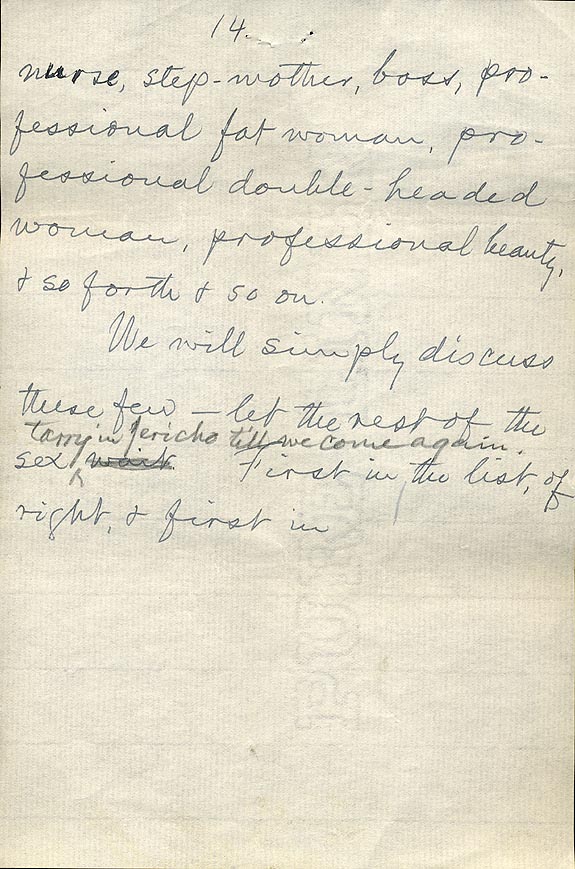 14.
nurse, step-mother, boss, pro-
fessional fat woman, pro-
fessional double-headed
woman, professional beauty,
& so forth & so on.
We will simply discuss
these few — let the rest of the
tarry in Jericho till we come again.
sex wait. First in the list, of
right, & first in